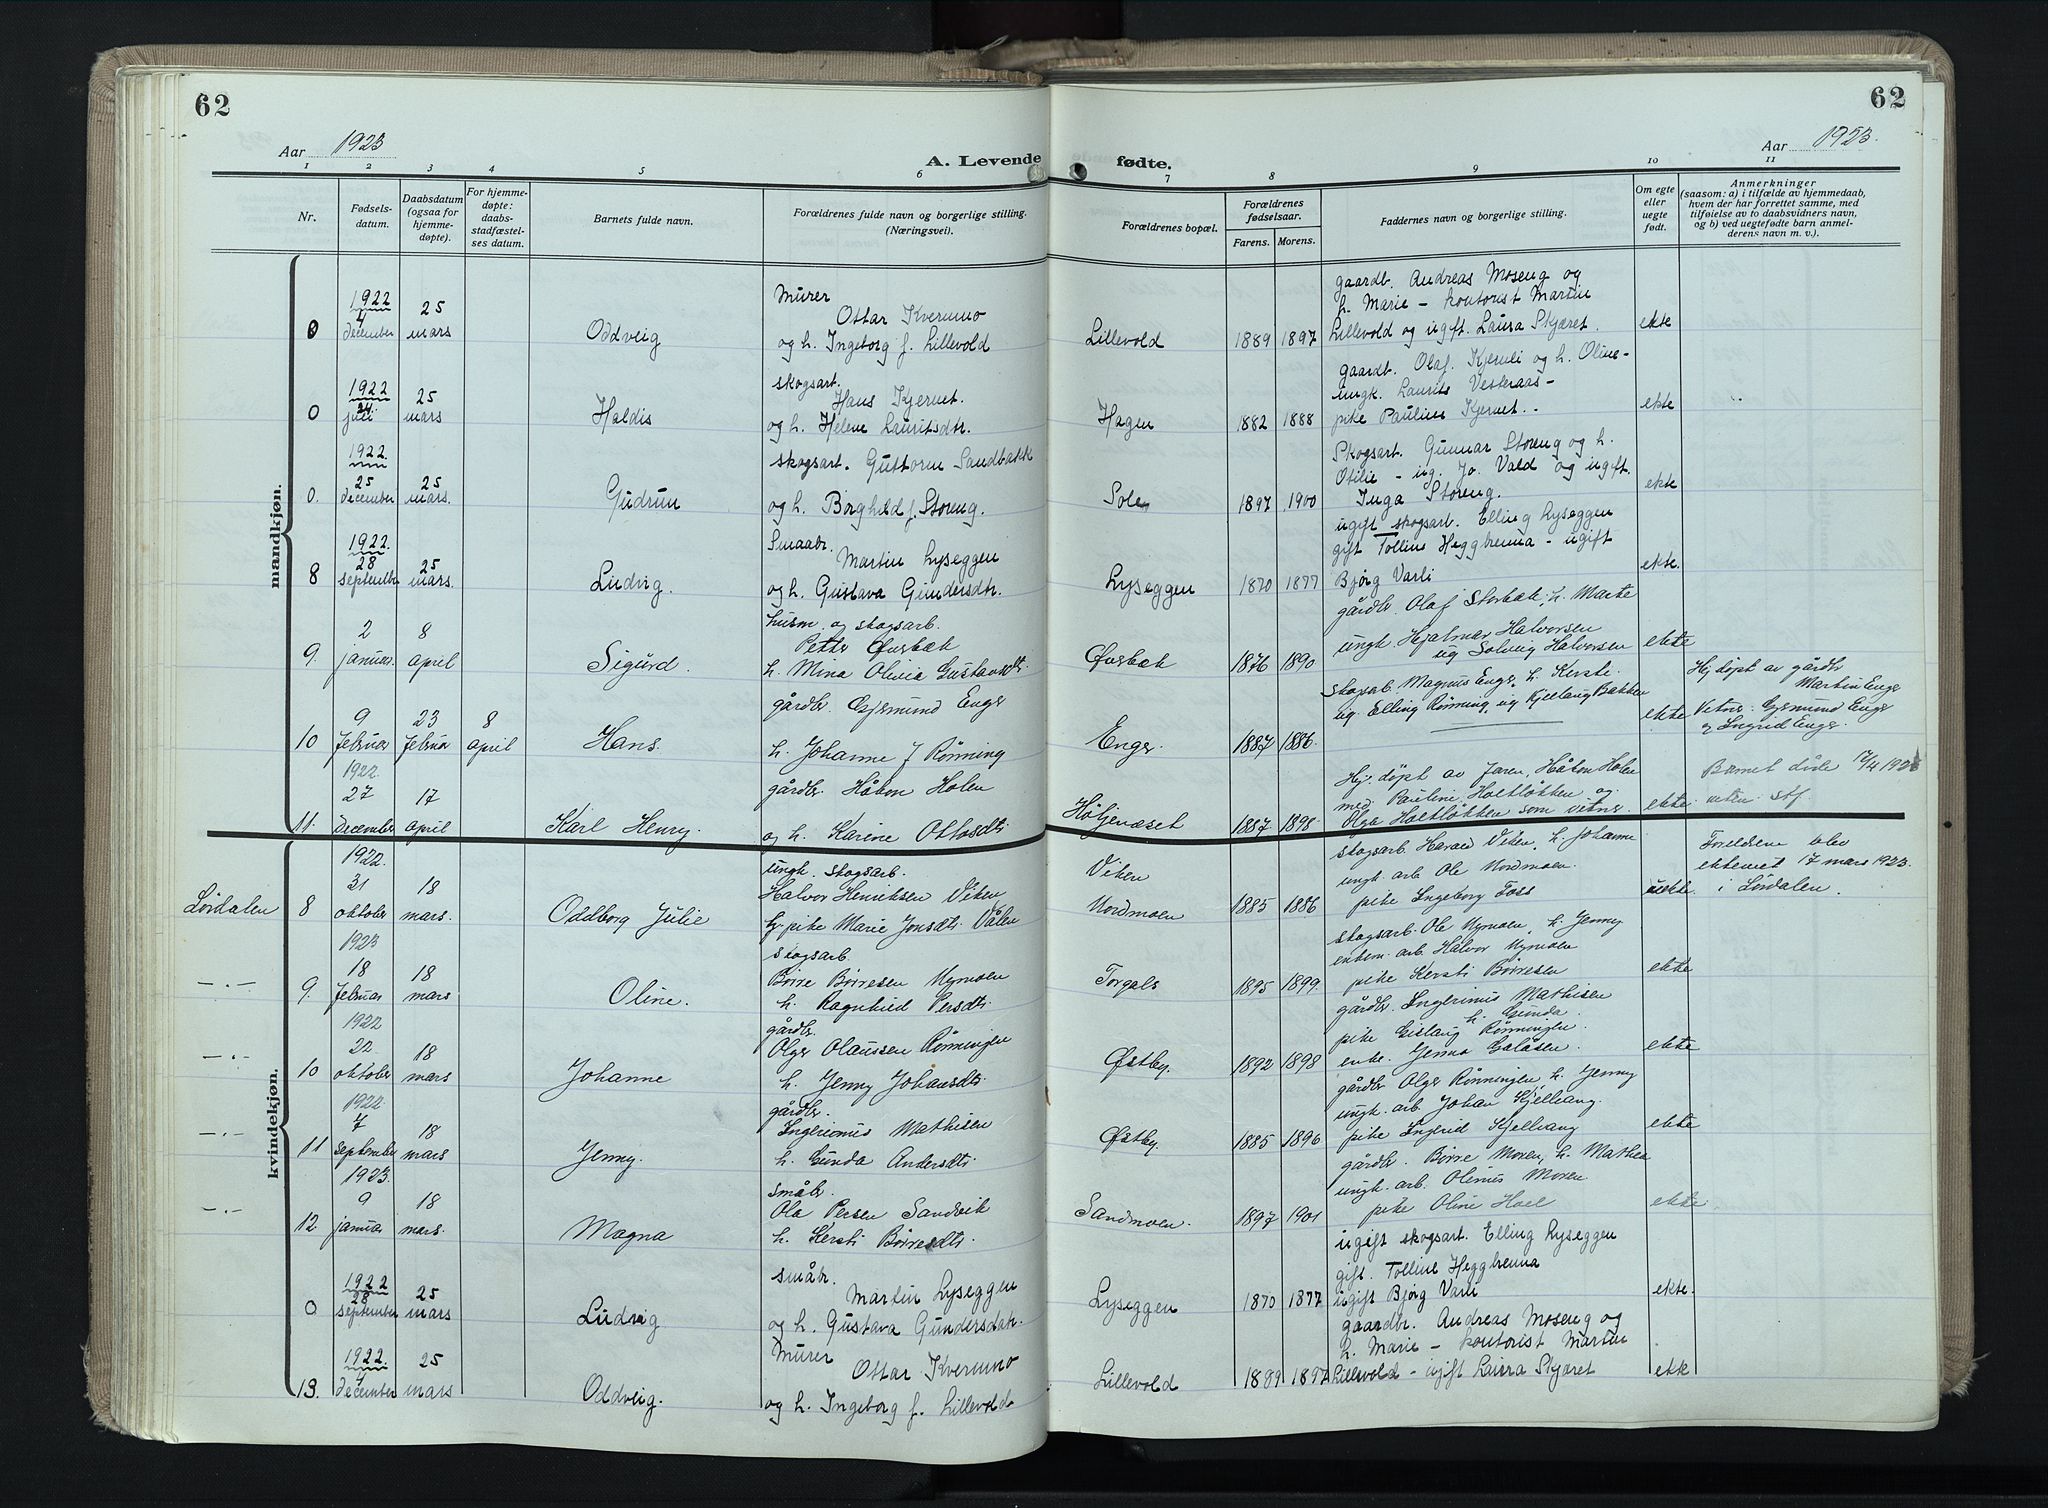 62
62
Aar 1923
Aar 1923.
A. Levende fødte.
1 2 3 4 5 6 7 8 9 10 11
Nr.
Fødselsdatum.
Daabsdatum (ogsaa for hjemmedøpte).
For hjemmedøpte: daabsstadfæstelses datum.
Barnets fulde navn.
Forældrenes fulde navn og borgerlige stilling. (Næringsvei).
Forældrenes bopæl.
Forældrenes fødselsaar.
Farens. Morens.
Faddernes navn og borgerlige stilling.
Om egte eller uegte født.
Anmerkninger
(saasom: a) i tilfælde av hjemmedaab,
hvem der har forrettet samme, med
tilføielse av to daabsvidners navn,
og b) ved uegtefødte barn anmel-
derens navn m. v.).
mandkjøn.
0 1922 4 december 25 mars Oddveig
Murer
Ottar Kvernmo
og h. Ingeborg f. Lillevold
Lillevold 1889 1897
gaardb. Andreas Moseng og
h. Marie – kontorist Martin
Lillevold og ugift. Laura Skjæret. ekte
0 1922 24. juli 25 mars Haldis
skogsart.
Hans Kjernet.
og h. Helene Lauritsdtr.
Hagen 1882 1888
gaardt. Olaf. Kjernli og h. Oline –
ungk. Laurits Vesteraas –
pike Pauline Kjernet. ekte
0. 1922. 25 december 25 mars. Gudrun
skogsart. Guttorm Sandbakk
og h. Borghild f. Storeng.
Sole 1897 1900
Skogsart. Gunnar Storeng og h.
Otilie – ug. Jo. Vald og ugift.
Inga Storeng. ekte
8 1922. 28 september 25 mars. Ludvig.
Smaabr.
Martin Lyseggen
og h. Gustava Gundersdtr.
Lyseggen 1870 1877
ugift skogsart. Elling Lyseggen
gift Tolline Heggbrenna – ugift
Bjørg Varli ekte.
9. 2 januar. 8 april Sigurd.
husm. og skogsarb.
Petter Øvrbæk
h. Mina Olivia Gustavsdtr.
Øvrbæk 1876 1890
gårdbr. Olaf Storbæk, h. Marte
ungk. Hjalmar Halvorsen
ug Solveig Halvorsen ekte
10 9 februar 23 februar 8 april Hans.
gårdbr. Gjermund Enger
h. Johanne f Rønning
Enger. 1887 1886.
skogsarb. Magnus Enger, h. Kersti.
ug. Elling Rønning, ug Kjellaug Bakken ekte
Hj. døpt av gårdbr
Martin Enger
Vitner: Gjermund Enger
og Ingrid Enger.
11. 1922 27 december 17 april Karl Henry.
gårdbr. Håkon Holen
og h. Karine Ottosdtr
Høljenæset 1887 1898.
Hj. døpt av faren, Håkon Holen
med Pauline Holtløkken og
Olga Holtløkken som vitner. ekte.
Barnet døde 17/4 192
uten stf.
kvindekjøn.
Lørdalen 8 1922. 31 oktober 18 mars. Oddborg Julie
ungk. skogsarb.
Halvor Henriksen Viken
og pike Marie Jonsdtr. Vålen
Viken
Nordmoen 1885 1886
skogsarb. Harald Viken, h. Johanne
ungk. arb Ole Nordmoen.
pike Ingeborg Foss uekte
Foreldrene blev
ektevied 17 mars 1923.
i Lørdalen.
–"– 9. 1923 18 februar 18 mars Oline.
skogsarb.
Børre Børresen Nymoen
h. Ragnhild Persdtr.
Torgals 1895 1899.
skogsarb. Ole Nymoen, h. Jenny
enkem. arb. Halvor Nymoen
pike Kersti Børresen ekte
–"– 10 1922 22. oktober 18 mars Johanne
gårdbr.
Olger Olaussen Rønningen
h. Jenny Johansdtr.
Østby. 1892 1898
gårdbr. Ingerinius Mathisen
h. Gunda.
pike Gislaug Rønningen.
enke. Jenna Galåsen. ekte
–"– 11 1922 7 september 18 mars Jenny.
gårdbr.
Ingerinius Mathisen
h. Gunda Andersdtr.
Østby. 1885 1896
gårdbr Olger Rønningen, h. Jenny
ungk. arb. Johan Kjellvang.
pike Ingrid Kjellvang ekte
–"– 12. 1923. 9 januar 18 mars. Magna
småbr.
Ola Persen Sandvik
h. Kersti Børresdtr.
Sandmoen. 1897 1901
gårdbr. Børre Moren, h. Mathea
ungk. arb. Olinus Moren
pike Oline Hoel ekte
0 1922 28 september 25 mars Ludvig
småbr.
Martin Lyseggen
og h. Gustava Gundersdatr.
Lyseggen 1870 1877
ugift skogsart. Elling Lyseggen
gift. Tolline Heggbrenna
ugift Bjørg Varli ekte.
13. 1922. 4 december 25 mars Oddveig.
Murer
Ottar Kvernmo
og h. Ingeborg f. Lillevold
Lillevold 1889 1897
gaardbr. Andreas Moseng og
h. Marie – kontorist Martin
Lillevold – ugift Laura Skjæret ekte